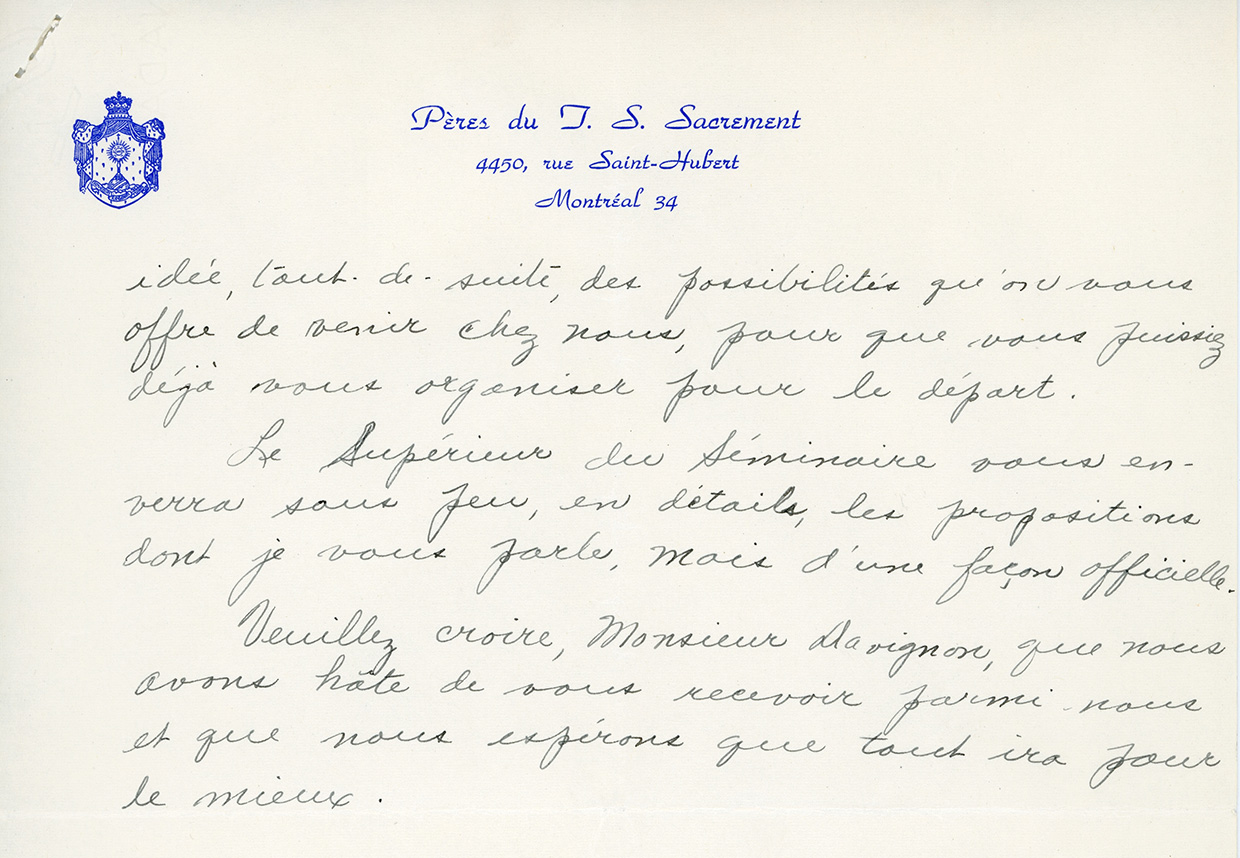 Pères du T. S. Sacrement
4450, rue Saint-Hubert
Montréal 34
idée, tout-de-suite, des possibilités qu'on vous
offre de venir chez nous, pour que vous puissiez
déjà vous organiser pour le départ.
Le Supérieur du Séminaire vous en-
verra sous peu, en détails, les propositions
dont je vous parle, mais d'une façon officielle.
Veuillez croire, Monsieur Davignon, que nous
avons hâte de vous recevoir parmi nous
et que nous espérons que tout ira pour
le mieux.